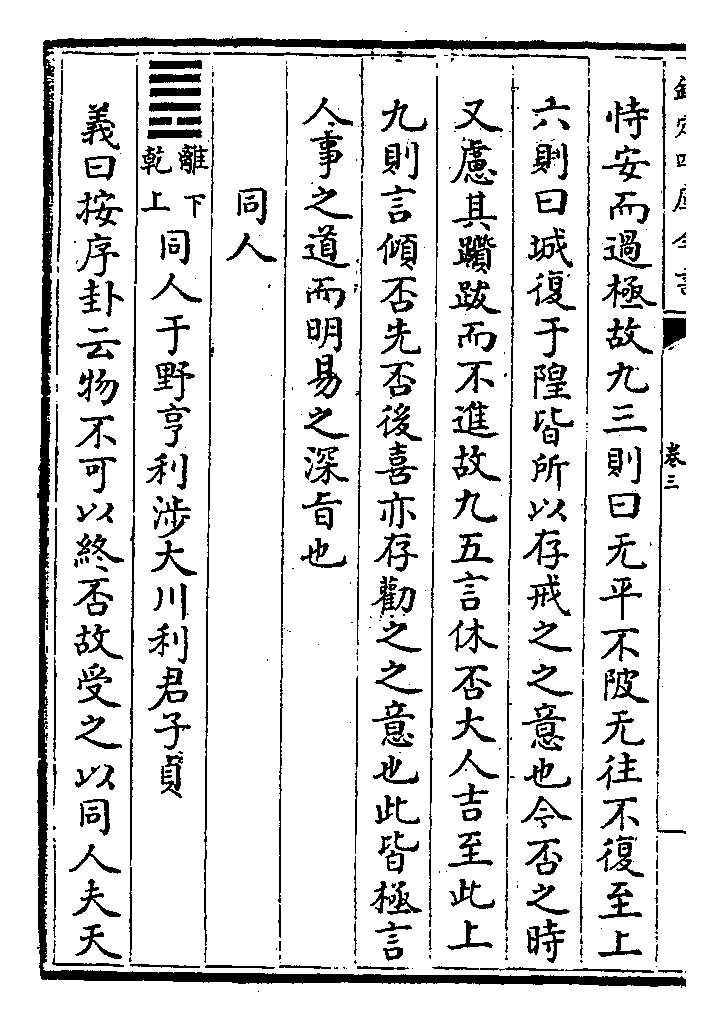 欽定四庫全書
卷三
恃安而過極故九三則曰无平不陂无往不復至上
六則曰城復于隍皆所以存戒之之意也今否之時
又慮其躓跋而不進故九五言休否大人吉至此上
九則言傾否先否後喜亦存勸之之意也此皆極言
人事之道而明易之深旨也
同人
離下
乾上
同人于野亨利涉大川利君子貞
義曰按序卦云物不可以終否故受之以同人夫天